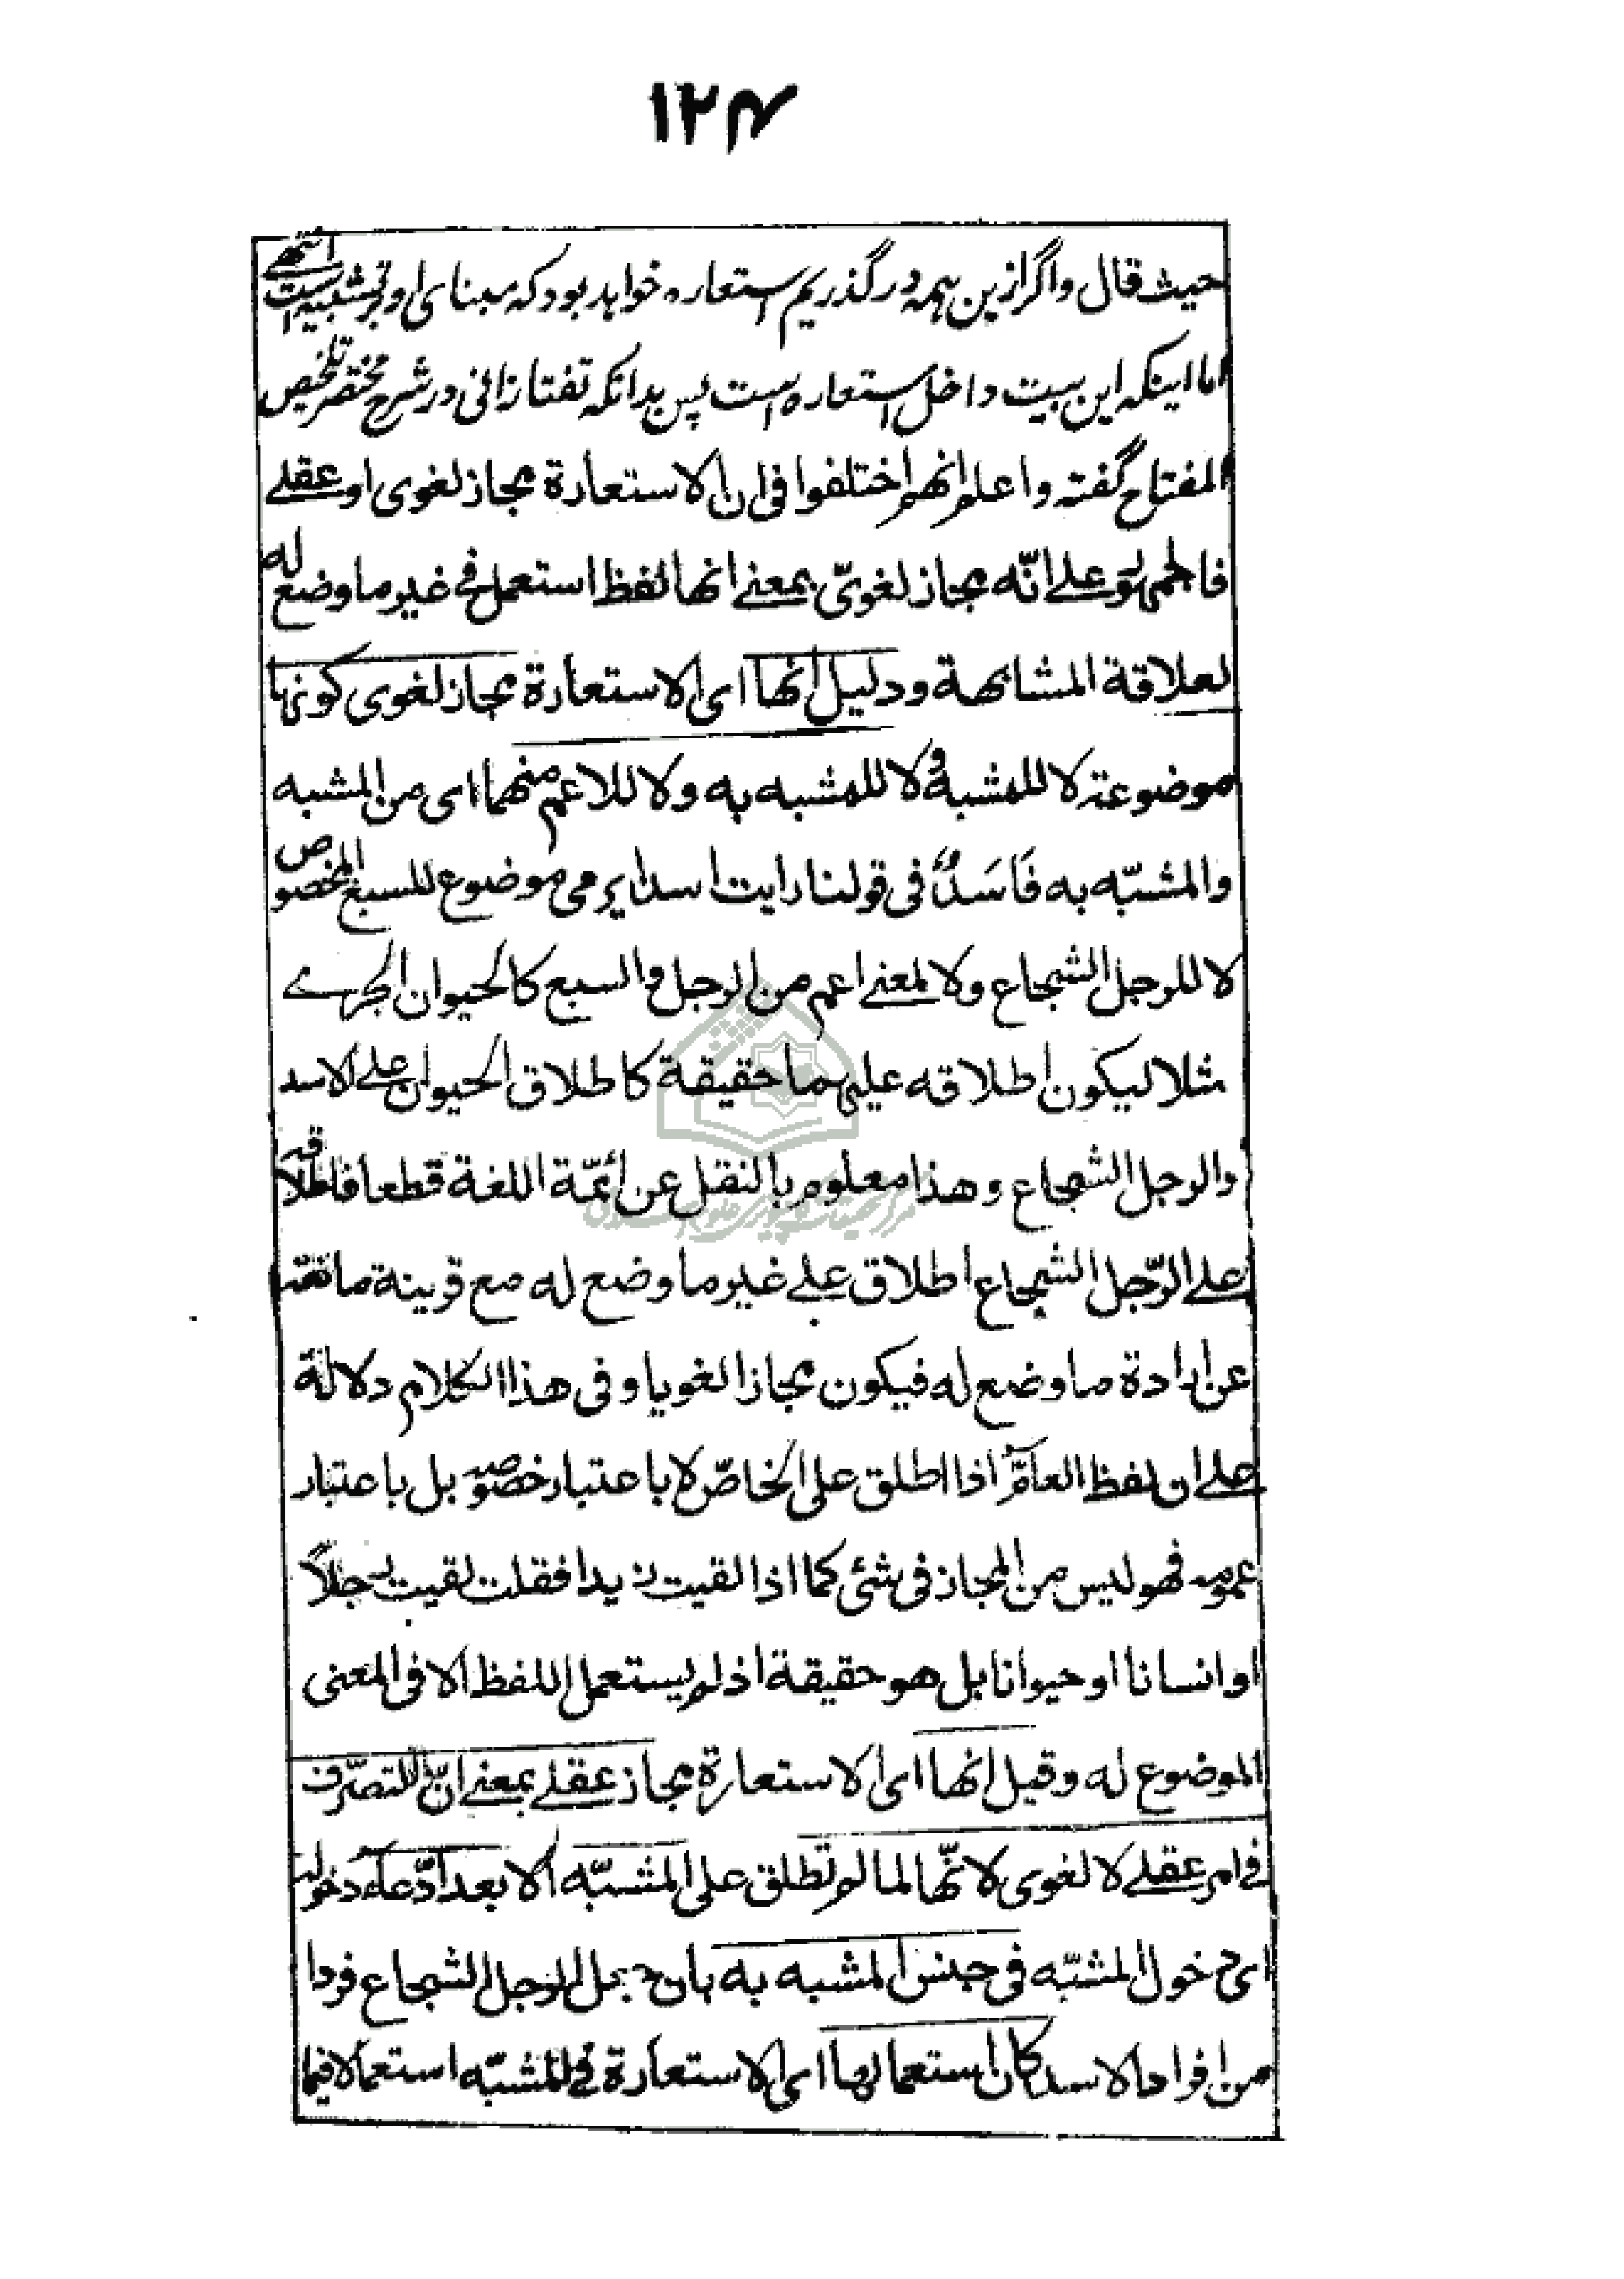 ۱۲۴
حیث قال واگر ازین همه در گذریم استعاره خواهد بود که مبنای او بر تشبیه است انتهی
اما اینکه این بیت داخل استعاره است پس بدانکه تفتازانی در شرح مختصر تلخیص
المفتاح گفته واعلم انهم اختلفوا فی ان الاستعارة مجاز لغوی او عقلے
فالجمهور علے انّه مجاز لغویّ بمعنے انها لفظ استعمل فے غیر ما وضع له
لعلاقة المشابهة ودلیل انها ای الاستعارة مجاز لغوی کونها
موضوعة لا للمشبه ولا للمشبه به ولا للاعم منهما ای من المشبه
والمشبّه به فَاَسَدٌ فی قولنا رایت اسدا یرمی موضوع للسبع المخصوص
لا للرجل الشجاع ولا لمعنے اعم من الرجل والسبع کالحیوان الجرے
مثلا لیکون اطلاقه علیهما حقیقة کاطلاق الحیوان علے الاسد
والرجل الشجاع وهذا معلوم بالنقل عن ائمّة اللغة قطعا فاطلاقه
علے الرّجل الشجاع اطلاق علے غیر ما وضع له مع قرینة مانعة
عن ارادة ما وضع له فیکون مجازا لغویا وفی هذا الکلام دلالة
علے ان لفظ العامّ اذا اطلق علی الخاصّ لا باعتبار خصوصه بل باعتبار
عمومه فهو لیس من المجاز فی شئ کما اذا لقیت زیدا فقلت لقیت رجلاً
او انسانا او حیوانا بل هو حقیقة اذ لم یستعمل اللفظ الا فی المعنی
الموضوع له وقیل انها ای الاستعارة مجاز عقلے بمعنے انّ التصرّف
فے امر عقلے لا لغوی لانّها لما لم تطلق علی المشبّه الا بعد ادّعاء دخوله
ای دخول المشبّه فی جنس المشبه به بان جعل الرجل الشجاع فردا
من افراد الاسد کان استعمالها ای الاستعارة فے المشبّه استعمالا فیما